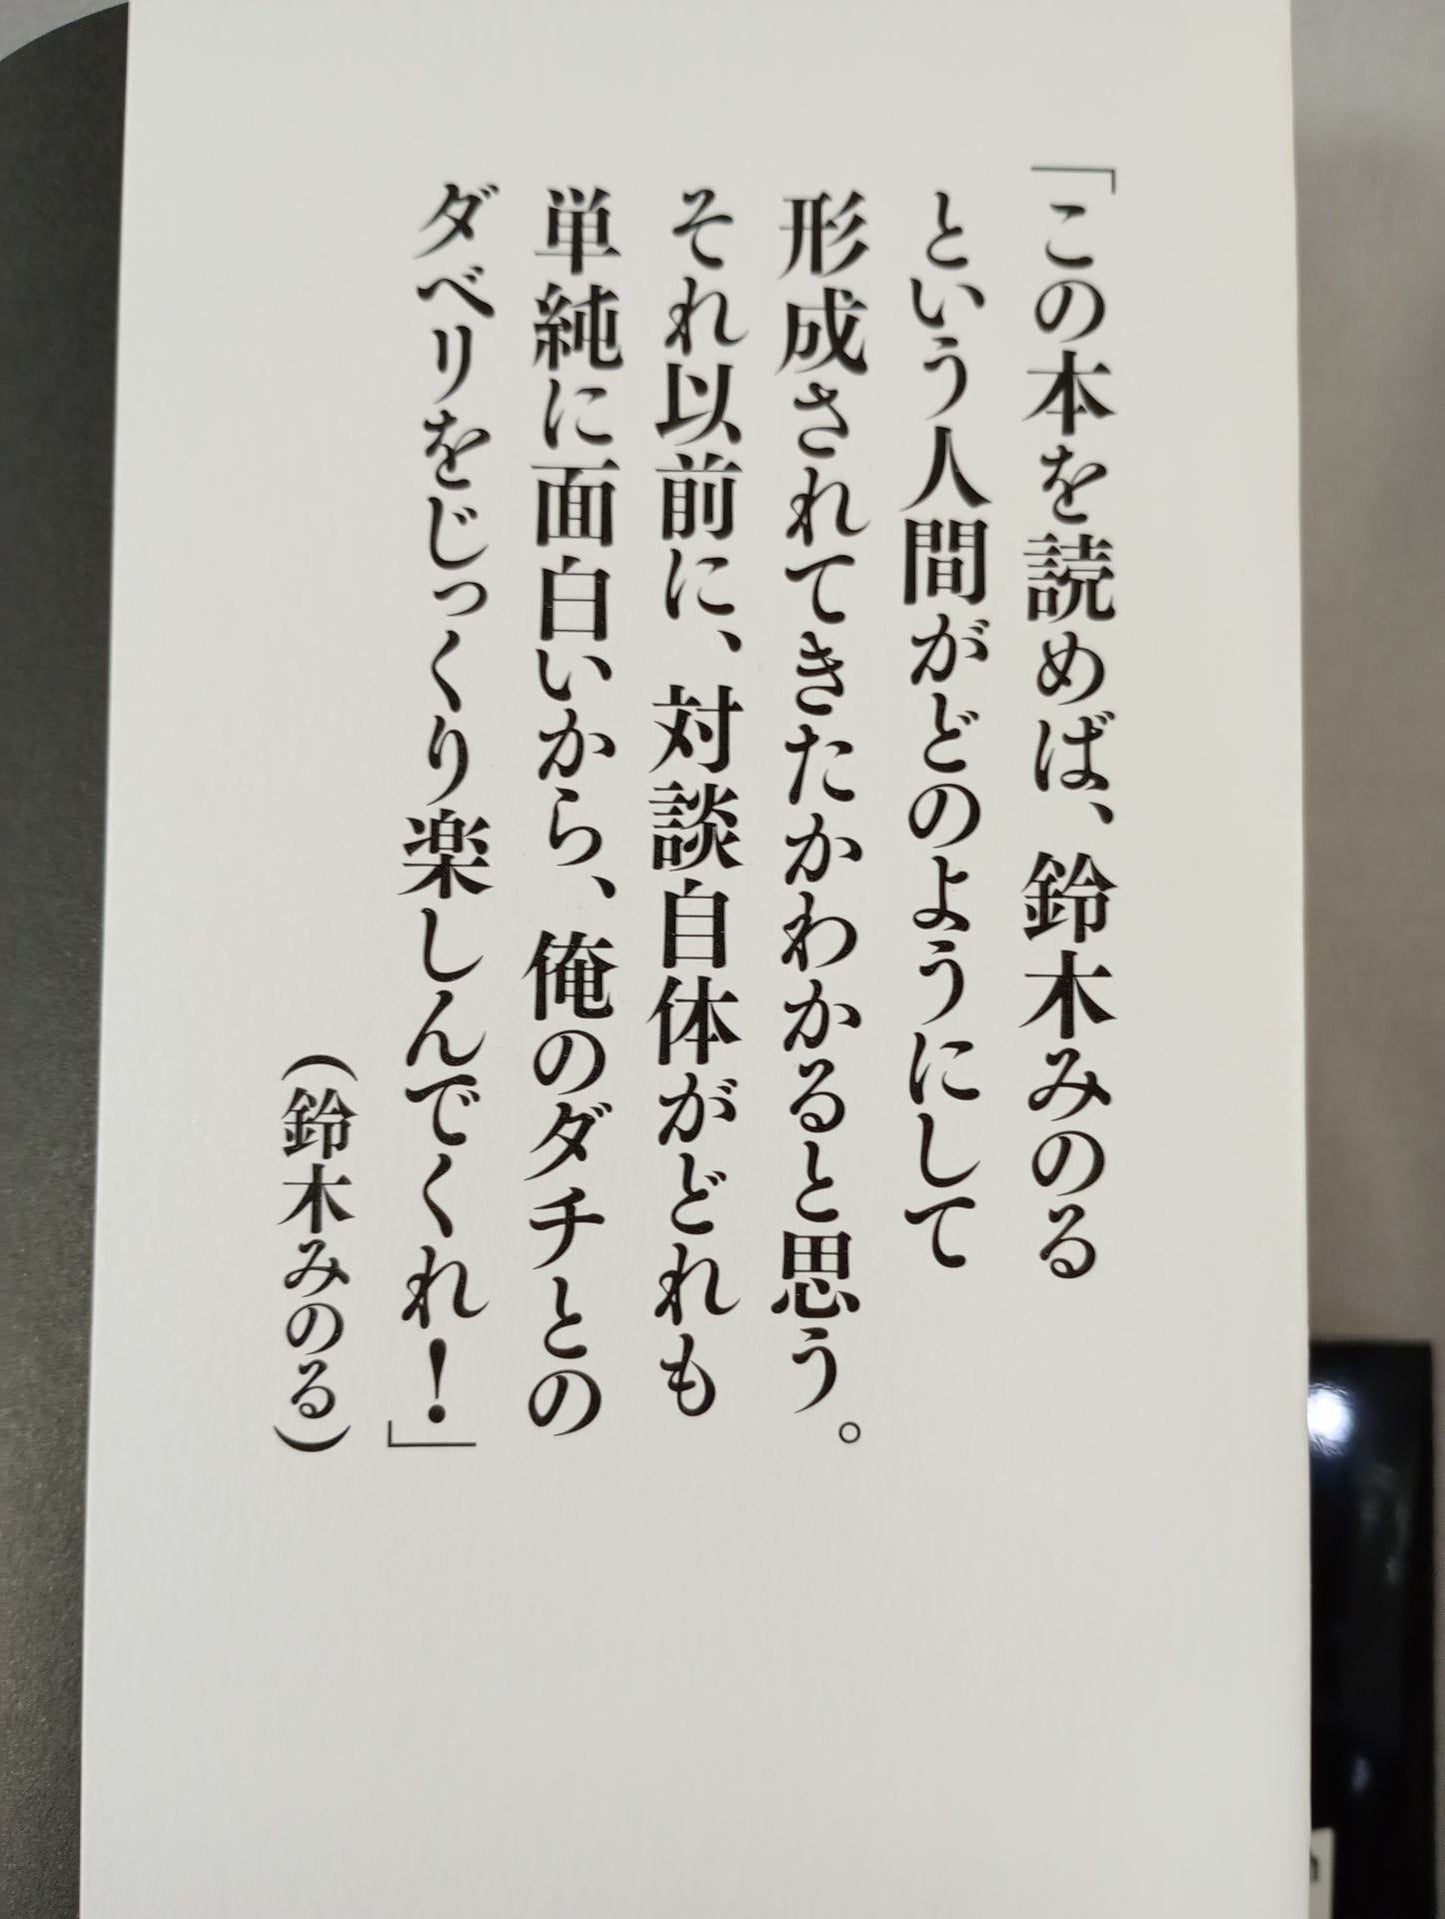 「この本を読めば、鈴木みのる
という人間がどのようにして
形成されてきたかわかると思う。
それ以前に、対談自体がどれも
単純に面白いから、俺のダチとの
ダベリをじっくり楽しんでくれ！」
（鈴木みのる）